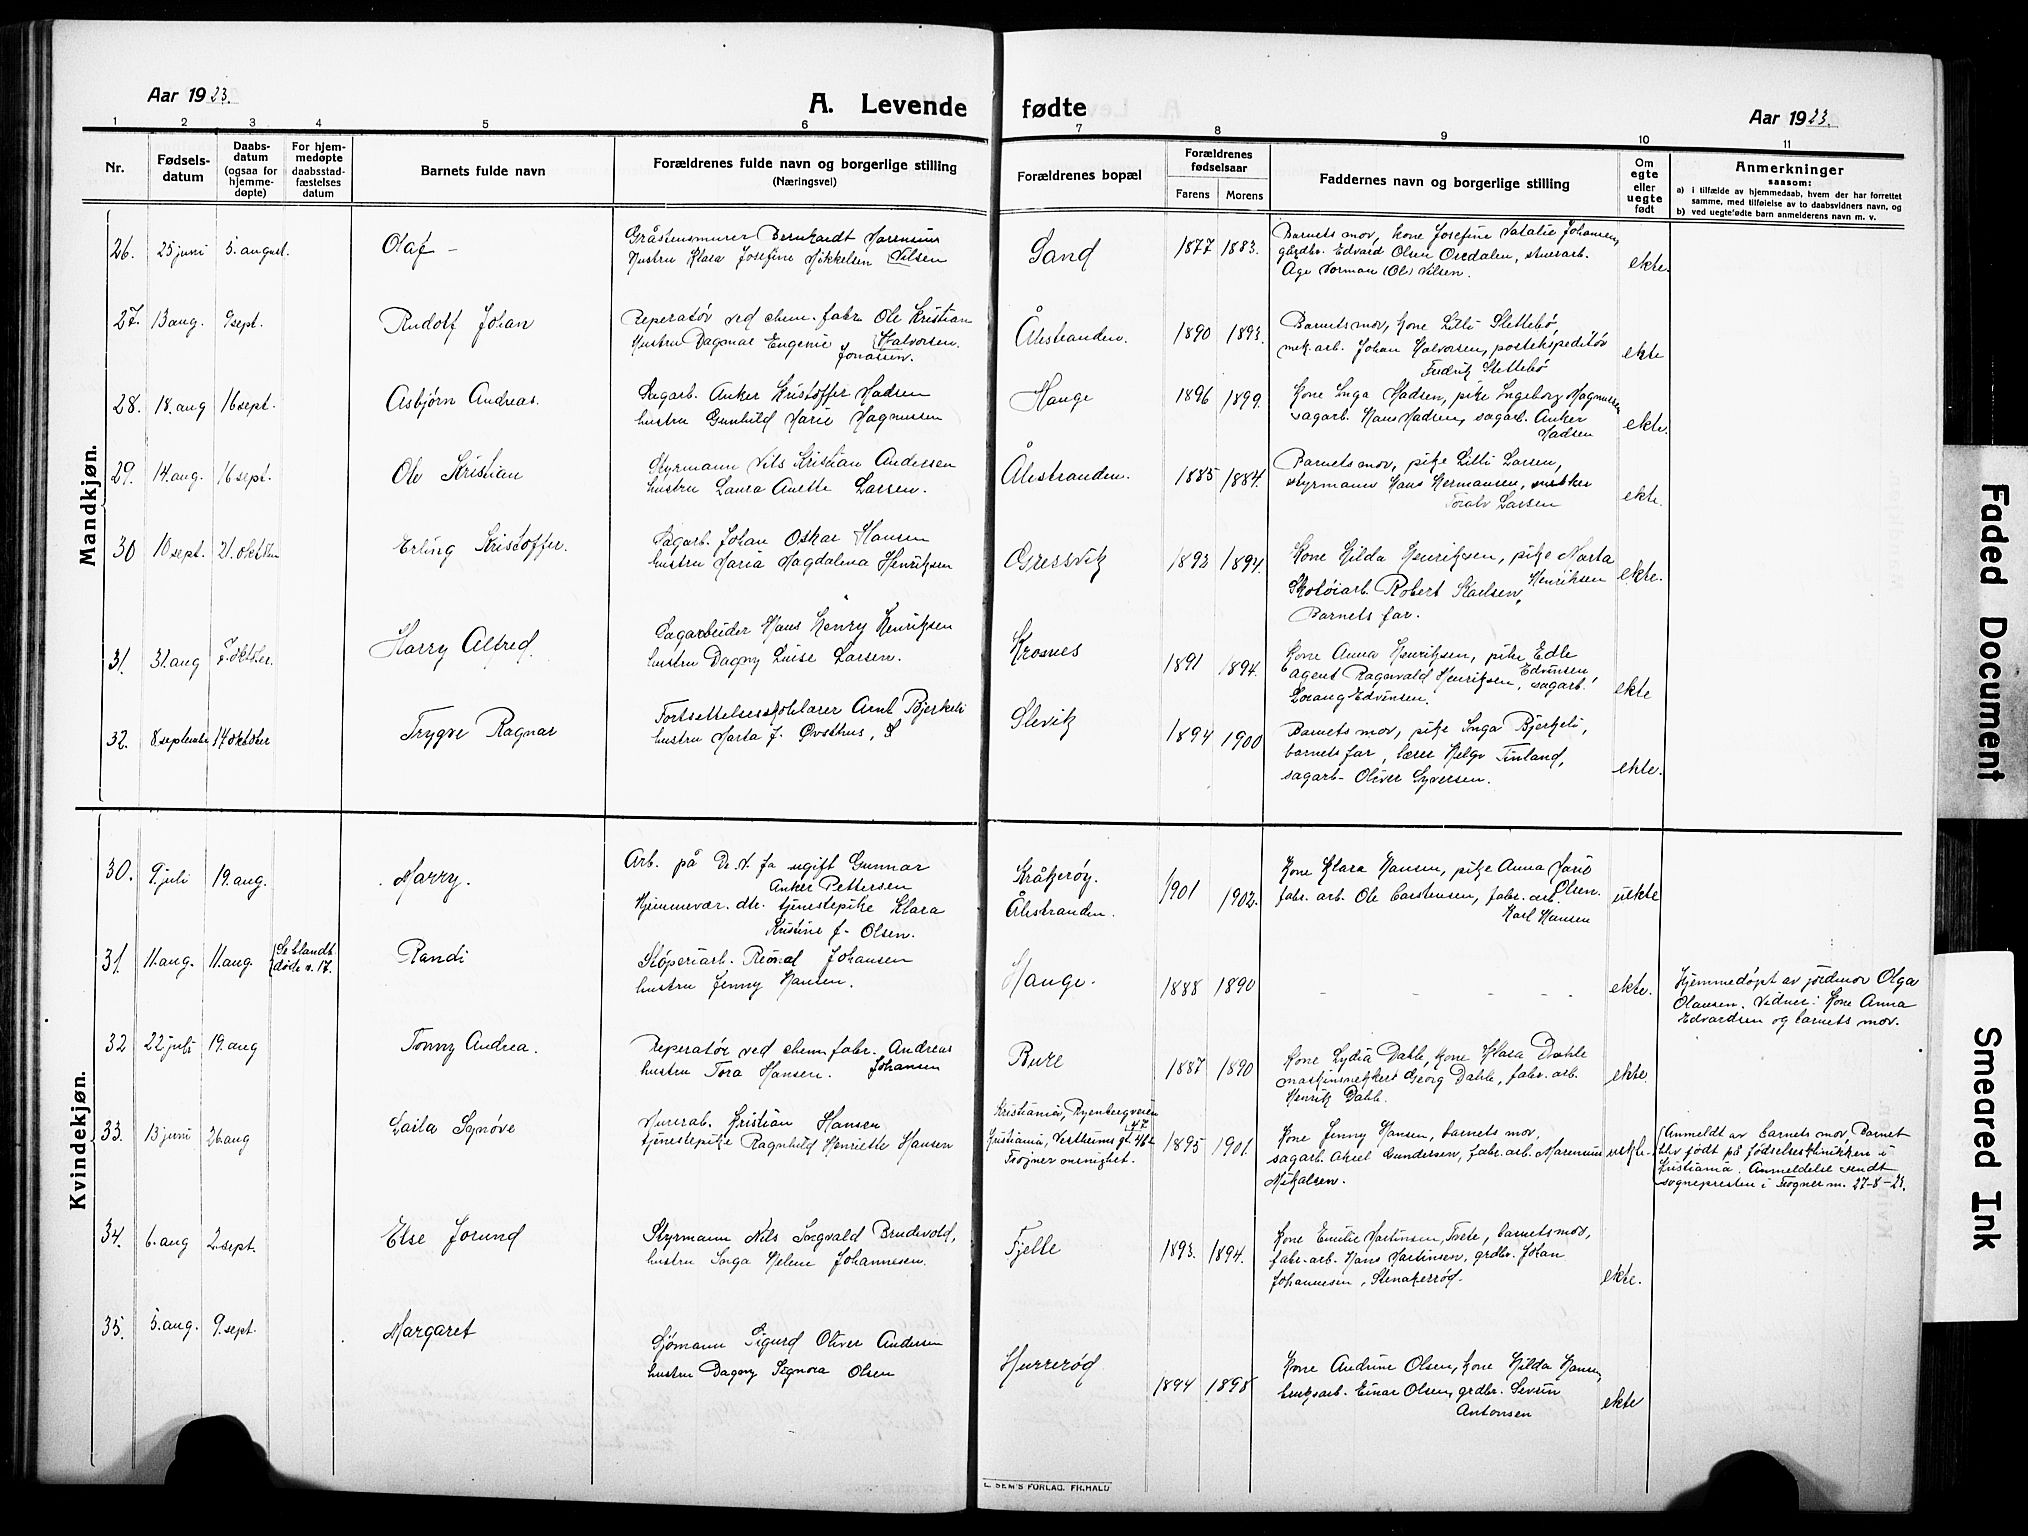 Aar 1923.
A. Levende fødte
Aar 1923.
1 2 3 4 5 6 7 8 9 10 11
Nr.
Fødsels-
datum
Daabs-
datum
(ogsaa for
hjemme-
døpte)
For hjem-
medøpte
daabsstad-
fæstelses
datum
Barnets fulde navn
Forældrenes fulde navn og borgerlige stilling
(Næringsvei)
Forældrenes bopæl
Forældrenes
fødselsaar
Farens Morens
Faddernes navn og borgerlige stilling
Om
egte
eller
uegte
født
Anmerkninger
saasom:
a) i tilfælde av hjemmedaab, hvem der har forrettet
samme, med tilføielse av to daabsvidners navn, og
b) ved uegtefødte barn anmelderens navn m. v.
Mandkjøn.
26. 25 juni 5. august. Olaf -
Gråstensmurer Bernhardt
hustru Klara Josefine Mikkelsen Nilsen
Sand 1877 1883.
Barnets mor, kone Josefine Natalie Johansen,
gårdbr. Edvard Olsen
Åge Norman (Ol) Nilsen.
ekte.
27. 13 aug. 9 sept. Rudolf Johan
Reperatør ved chem. fabr. Ole Kristian
hustru Dagmar Eugenie Halvorsen.
Jonassen.
Ålestranden. 1890 1893.
Barnets mor, kone Lilli Slettebø,
mek. arb. Johan Halvorsen, postekspeditør
Fredrik Slettebø
ekte
28. 18. aug 16 sept. Asbjørn Andreas.
Sagarb. Anker Kristoffer Madsen
hustru Gunhild Marie Magnussen
Hauge 1896 1899.
Kone Inga Madsen, pike Ingeborg Magnussen
sagarb. Hans Madsen, sagarb. Anker
Madsen
ekte.
29. 14. aug. 16 sept. Ole Kristian
Styrmann Nils Kristian Andersen
hustru Laura Anette Larsen.
Ålestranden. 1885 1884.
Barnets mor, pike Lilli Larsen,
styrmann Hans Hermansen, snekker
Toralv Larsen
ekte.
30 10 sept. 21. oktober Erling Kristoffer.
Sagarb. Johan Oskar Hansen
hustru Maria Magdalena Henriksen
Gressvik 1892 1894.
Kone Hilda Henriksen, pike Marta
Henriksen
Skotøiarb. Robert Karlsen,
Barnets far.
ekte.
31. 31. aug 7. oktober. Harry Alfred.
Sagarbeider Hans Henry Henriksen
hustru Dagny Luise Larsen.
Krosnes 1891 1894.
Kone Anna Henriksen, pike Edle
Edvinsen
agent Ragnvald Henriksen, sagarb.
Lorang Edvinsen.
ekte
32. 8. september 14 oktober Trygve Ragnar
Fortsettelsesskolelærer Arnt Bjerkeli
hustru Marta J. Øvsthus,
Slevik 1894 1900
Barnets mor, pike Inga Bjerkeli,
barnets far, lærer Helge Tinland,
sagarb. Oliver Syversen.
ekte.
Kvindekjøn.
30. 9. juli 19. aug. Marry.
Arb. på De. N. fa. ugift Gunnar
Anker Pettersen
Hjemmevær. dtr. tjenestepike Klara
Kristine J. Olsen.
Kråkerøy.
Ålestranden. 1901 1902.
Kone Klara Hansen, pike Anna Marie
Olsen.
fabr. arb. Ole Carstensen, fabr. arb.
Karl Hansen
uekte
31. 11. aug. 11. aug (Se blandt
døde n. 17. Randi
Støperiarb. Johansen
hustru Jenny Hansen.
Hauge. 1888 1890
- - - - -
ekte.
Hjemmedøpt av jordmor Olga
Olausen. Vidner: Kone Anna
Edvardsen og barnets mor.
32 22 juli 19. aug Tonny Andrea.
Reperatør ved chem. fabr. Andreas
hustru Tora Hansen. Johansen
Bure 1887 1890
Kone Lydia Dahle, kone Klara Dahle
maskinsnekker Georg Dahle, fabr. arb.
Henrik Dahle.
ekte.
33. 13 juni 26. aug Laila Synøve
Murerab. Kristian Hansen
tjenestepike Ragnhild Henriette Hansen
Kristiania, Ryenbergveien
47
Kristiania, Vestheims gt. 4b
Frogner menighet. 1895 1901.
Kone Jenny Hansen, barnets mor,
sagarb. Aksel Gundersen, fabr. arb. Marenius
Mikalsen.
uekte.
(Anmeldt av barnets mor, Barnet
blev født på fødselsklinikken i
Kristiania. Anmeldelse sendt
sognepresten i Frogner m. 27-8-23.
34. 6. aug 2. sept. Else Jorund
Styrmann Nils Ingvald Brudevold,
hustru Inga Helene Johannesen.
Fjelle 1893. 1894.
Kone Emilie Martinsen, Trete, barnets mor,
fabr. arb. Hans Martinsen, grdbr. Johan
Johannesen, Stenakerrød.
ekte.
35. 5. aug. 9. sept. Margaret
Sjømann Sigurd Oliver Andersen
hustru Dagny Signora Olsen
Hurrerød 1894 1898
Kone Andrine Olsen, kone Hilda Hansen,
bruksarb. Einar Olsen, grdbr. Severin
Antonsen
ekte
SEM'S FORLAG. FR.HALD
Faded Document
Smeared Ink